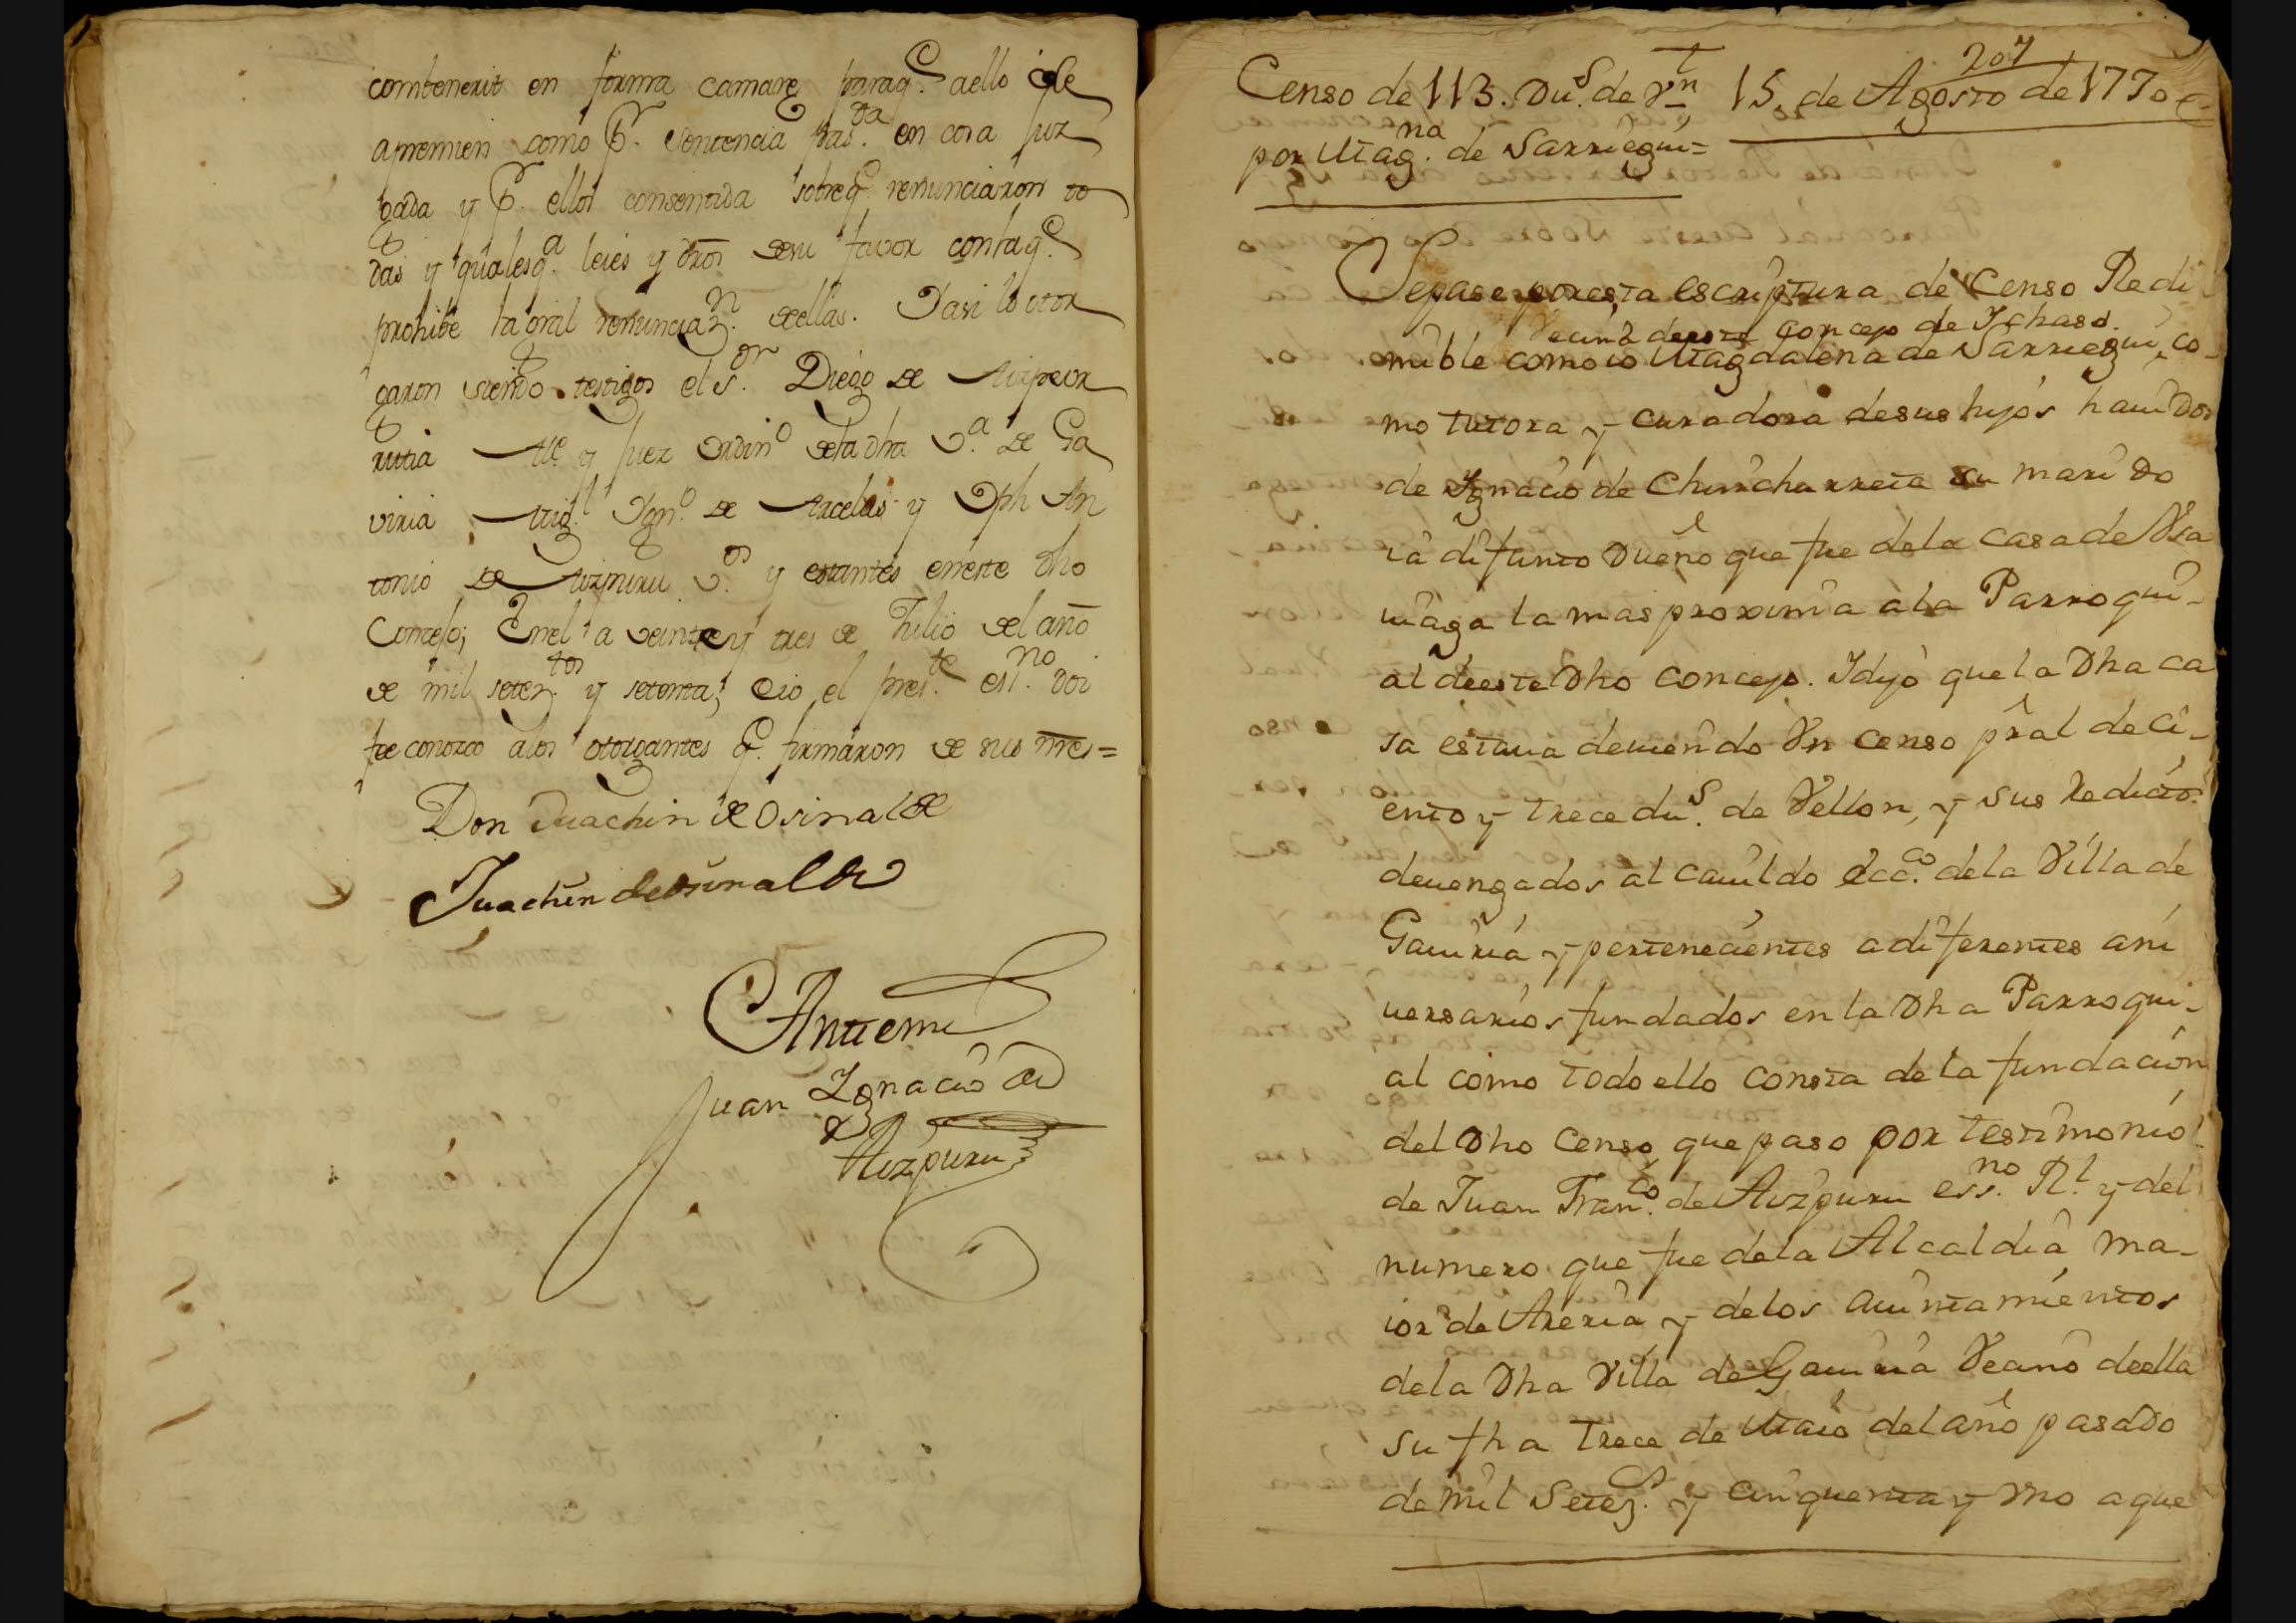 combenerit en forma camare paraq.e aello se
apremien como P.r Sentencia pas.da en cosa Juz
gada y P.r ellos consentida sobreq.e renunciaron to
das y qualesq.a leies y dros desu favor conlaq.e
prohive la gral renunciaz.n dellas. Y asi lo otor
garon siendo testigos el S.or Diego de Aizpeur
rutia Al.e y Juez Ordin.o dela dha V.a de Ga
viria Mig.l Ygn.o de Arcelus y Jph An
tonio de Aizpuru V.os y estantes eneste dho
Concejo; Enel a veinte y tres de Julio del año
de mil setez.tos y setenta; eio el pres.te ess.no doi
fee conozco alos otorgantes q.e firmaron de sus nres=
Don Juachin de Osinalde
Juachin de osinalde
Antemi
Juan Ygnacio de
Aizpuru
207
Censo de 113. Du.s de V.n 15. de Agosto de 1770
por Mag.na de Sarriegui=
Sepase por esta escriptura de Censo Redi
Vecina deeste Concejo de Ychaso.
mible como io Magdalena de Sarriegui, co-
mo tutora y curadora desus hijos havidos
de Ygnacio de Chincharreta su marido
ia difunto Dueño que fue dela casa de Vsa
uiaga la mas proxima ala Parroqui-
al deeste Dho concejo. Y dijo que la Dha ca
sa estaua deuiendo Vn censo pral de ci-
ento y trece du.s de Vellon, y sus Reditos
deuengados al cauildo ecc.co dela Villa de
Gauiria y pertenecientes a diferentes ani
uersarios fundados en la Dha Parroqui-
al como todo ello consta de la fundacion
del Dho censo que paso por testimonio
de Juan Fran.co de Aizpuru ess.no R.l y del
numero que fue dela Alcaldia ma-
ior de Areria y delos aiuntamientos
dela Dha Villa de Gauiria Vecino deella
su fha trece de Maio del año pasado
de mil Setez.s y cinquenta y vno a que